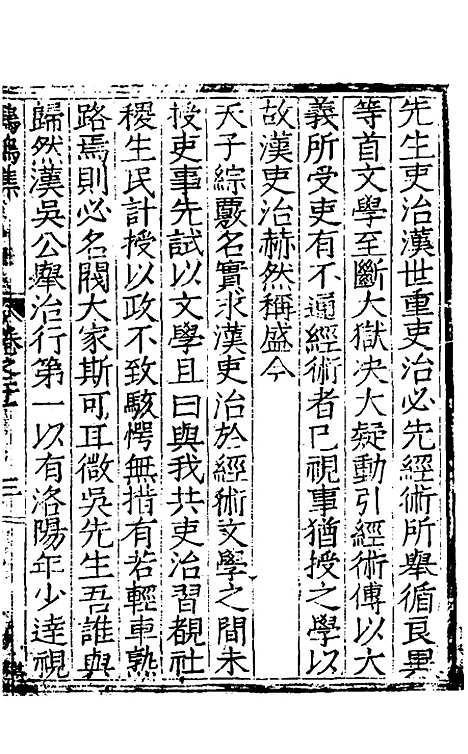 先生吏治漢世重吏治必先經術所舉循良異
等首文學至斷大獄决大疑動引經術傅以大
義所受吏有不通經術者已視事猶授之學以
故漢吏治赫然稱盛今
天子綜覈名實求漢吏治於經術文學之間未
投吏事先試以文學且曰與我共吏治習覩社
稷生民計授以政不致駭愕無措有若輕車熟
路焉則必名閥大家斯可耳微吳先生吾誰與
歸然漢吳公舉治行第一以有洛陽年少達視
集
卷之